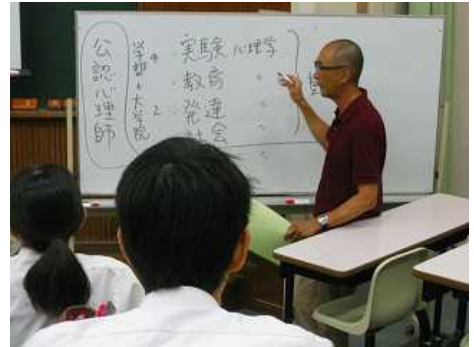 公認心理師
学部4
大学院2
・実験心理学
・教育 〃
・発達 〃
社会 〃